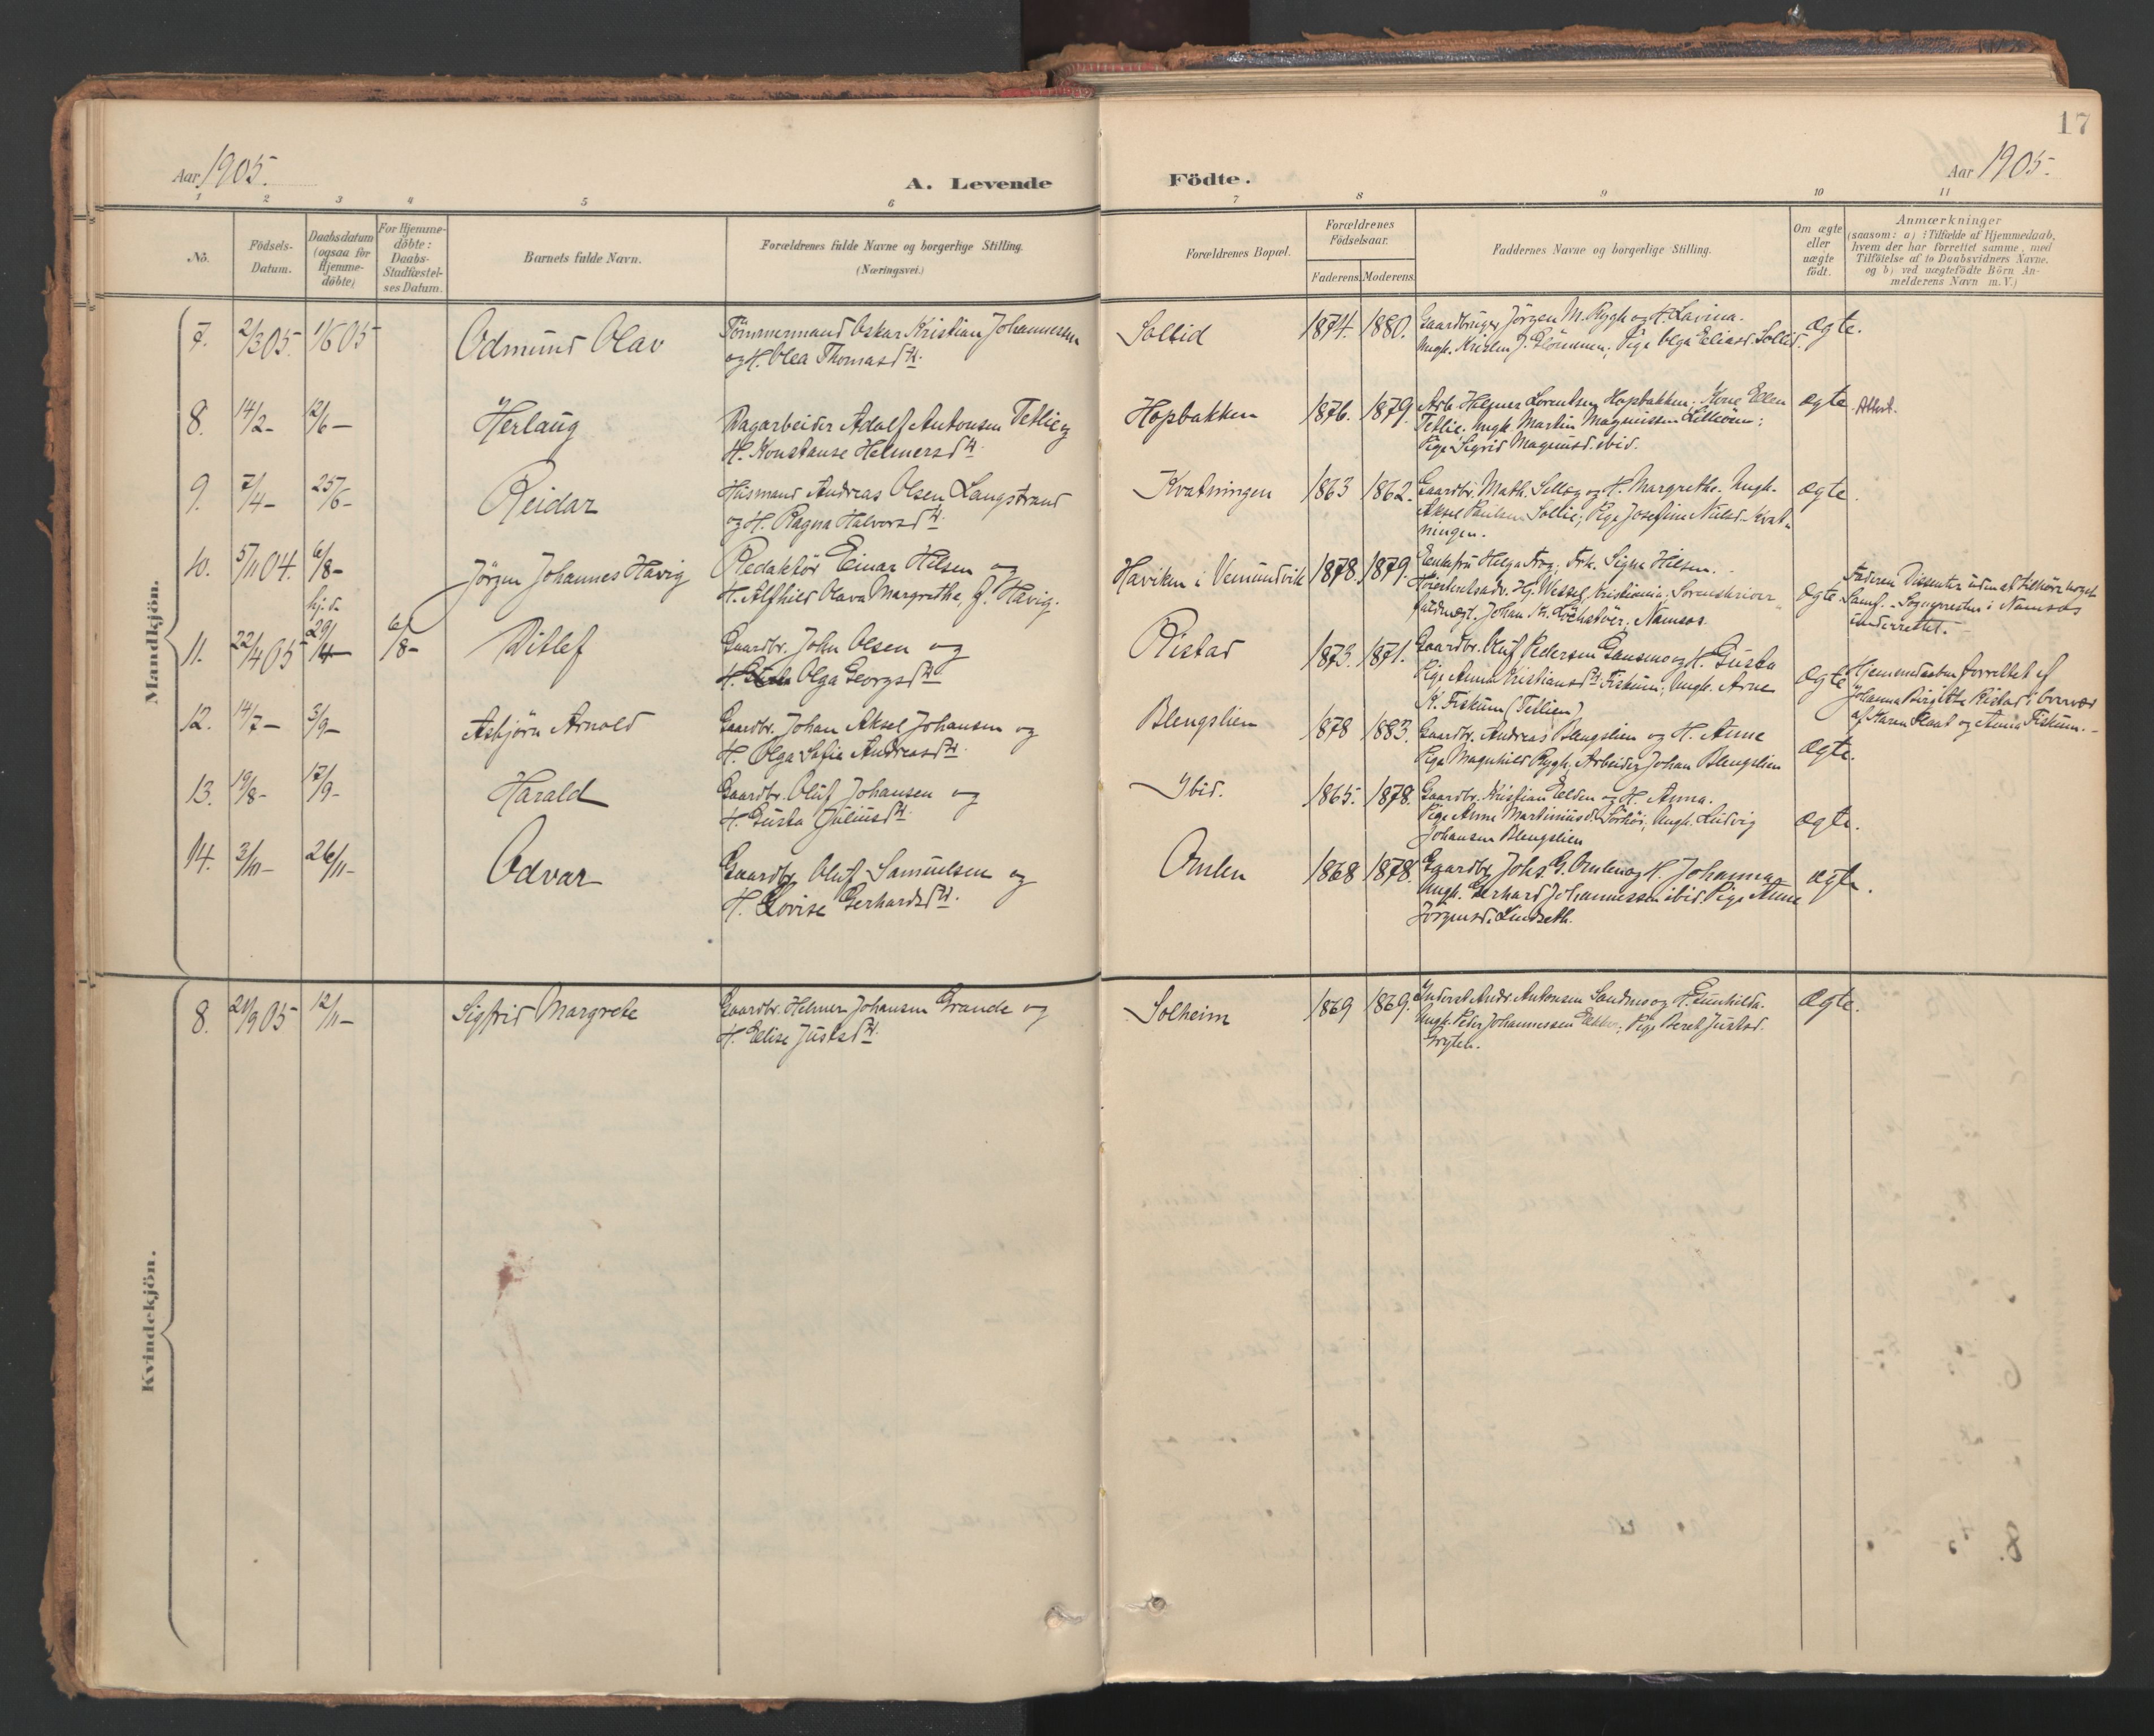 17
Aar 1905.
A. Levende Födte.
Aar 1905.
1 2 3 4 5 6 7 8 9 10 11
No.
Födsels-Datum.
Daabsdatum (ogsaa for Hjemme-döbte)
For Hjemme-döbte: Daabs-Stadfæstel-ses Datum.
Barnets fulde Navn.
Forældrenes fulde Navne og borgerlige Stilling.
(Næringsvei.)
Forældrenes Bopæl.
Forældrenes Födselsaar.
Faderens. Moderens.
Faddernes Navne og borgerlige Stilling.
Om ægte eller uægte født.
Anmærkninger
(saasom: a) i Tilfælde af Hjemmedaab,
hvem der har forrettet samme, med
Tilföielse af to Daabsvidners Navne,
og b) ved uægtefödte Börn An-
melderens Navn m. V.)
Mandkjön.
7. 2/3 05. 1/6 05 Odmund Olav
Tömmermand Oskar Kristian Johannessen
og H. Olea Thomasdtr.
Soltid 1874. 1880.
Gaardbruger Jörgen M. Rygh og H. Lavina.
Ungk. Kristen J. Glömmen; Pige Olga Eliasd. Soltid.
ægte.
8. 14/2- 12/6- Herlaug
Dagarbeider Adolf Antonsen Tetlie og
H. Konstanse Helmersdtr.
Hopbakken 1876. 1879.
Arb. Helmer Lorentsen Hopbakken; Kone Ellen
Tetlie. Ungk. Martin Magnussen
Pige Sigrid Magnusd. ibid.
ægte. Attest.
9. 7/4- 25/6- Reidar
Husmand Andreas Olsen Langstrand
og H. Ragna Halvorsdtr.
Kvatningen 1863 1862.
Gaardbr. Math. Sellæg og H. Margrethe. Ungk.
Aksel Paulsen Sollie; Pige Josefine Nilsd. Kvat-
ningen.
ægte.
10. 5/11 04. 6/8- Jörgen Johannes Havig
Redaktör Einar Hilsen og
H. Alfhild Olava Margrethe, f. Havig.
Haviken i Vemundvik 1878. 1879.
Enkefru Helga Frk. Signe Hilsen.
Höiesteretsadv. Hj. Wessel, Kristiania; Sorenskriver-
fuldmægt. Johan Namsos.
ægte.
Faderen Dissenter uden at tilhöre noget
Samf. - Sognepresten i Namsos
underrettet. -
11. 22/4 05 hj. d. 29/4 6/8- Ditlef
Gaardbr. John Olsen og
H. Olga Georgsdtr.
Ristad 1873. 1871.
Gaardbr. Oluf Pedersen Gansmo og H. Gusta
Pige Anna Kristiansdtr. Fiskum; Ungk. Arne
K. Fiskum (Tetlien)
ægte
Hjemmedaaben forrettet af
Johanna Birgitte Ristad i Overvær
af Karen Flaat og Anna Fiskum. -
12. 14/7- 3/9- Asbjörn Arnold
Gaardbr. Johan Aksel Johansen og
H. Olga Sofie Andreasdtr.
Blengslien 1878 1883.
Gaardbr. Andreas Blengslien og H. Anne
Pige Magnhild Rygh; Arbeider Johan Blengslien
ægte.
13. 19/8- 17/9- Harald
Gaardbr. Oluf Johansen og
H. Gusta Juliusdtr.
Ibid. 1865. 1878.
Gaardbr. Kristian Elden og H. Anna.
Pige Anne Martinusd. Ungk. Ludvig
Johansen Blengslien
ægte.
14. 3/10- 26/11- Odvar
Gaardbr. Oluf Samuelsen og
H. Lovise Gerhardsdtr.
Omlen 1868 1878.
Gaardbr. Johs. G. Omlen og H. Johanna
Ungk. Gerhard Johannessen ibid. Pige Anne
Jörgensd. Lindseth.
ægte.
Kvindekjön.
8. 21/9 05 12/11- Sigfrid Margrete
Gaardbr. Helmer Johansen Grande og
H. Elise Justsdtr.
Solheim 1869 1869.
Inderst Andr. Antonsen Sandmo og H. Gunhilda.
Ungk. Peter Johannessen Pige Beret Justsd.
ægte.